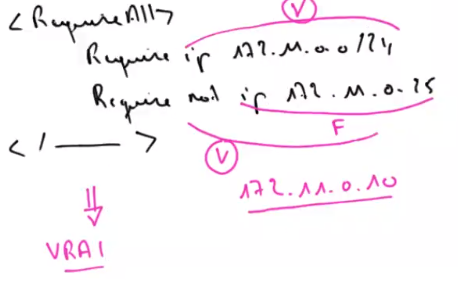 <RequireAll>
V
Require ip 172.11.0.0/24
Require not ip 172.11.0.25
F
</ — >
V
172.11.0.10
⇓
VRAI